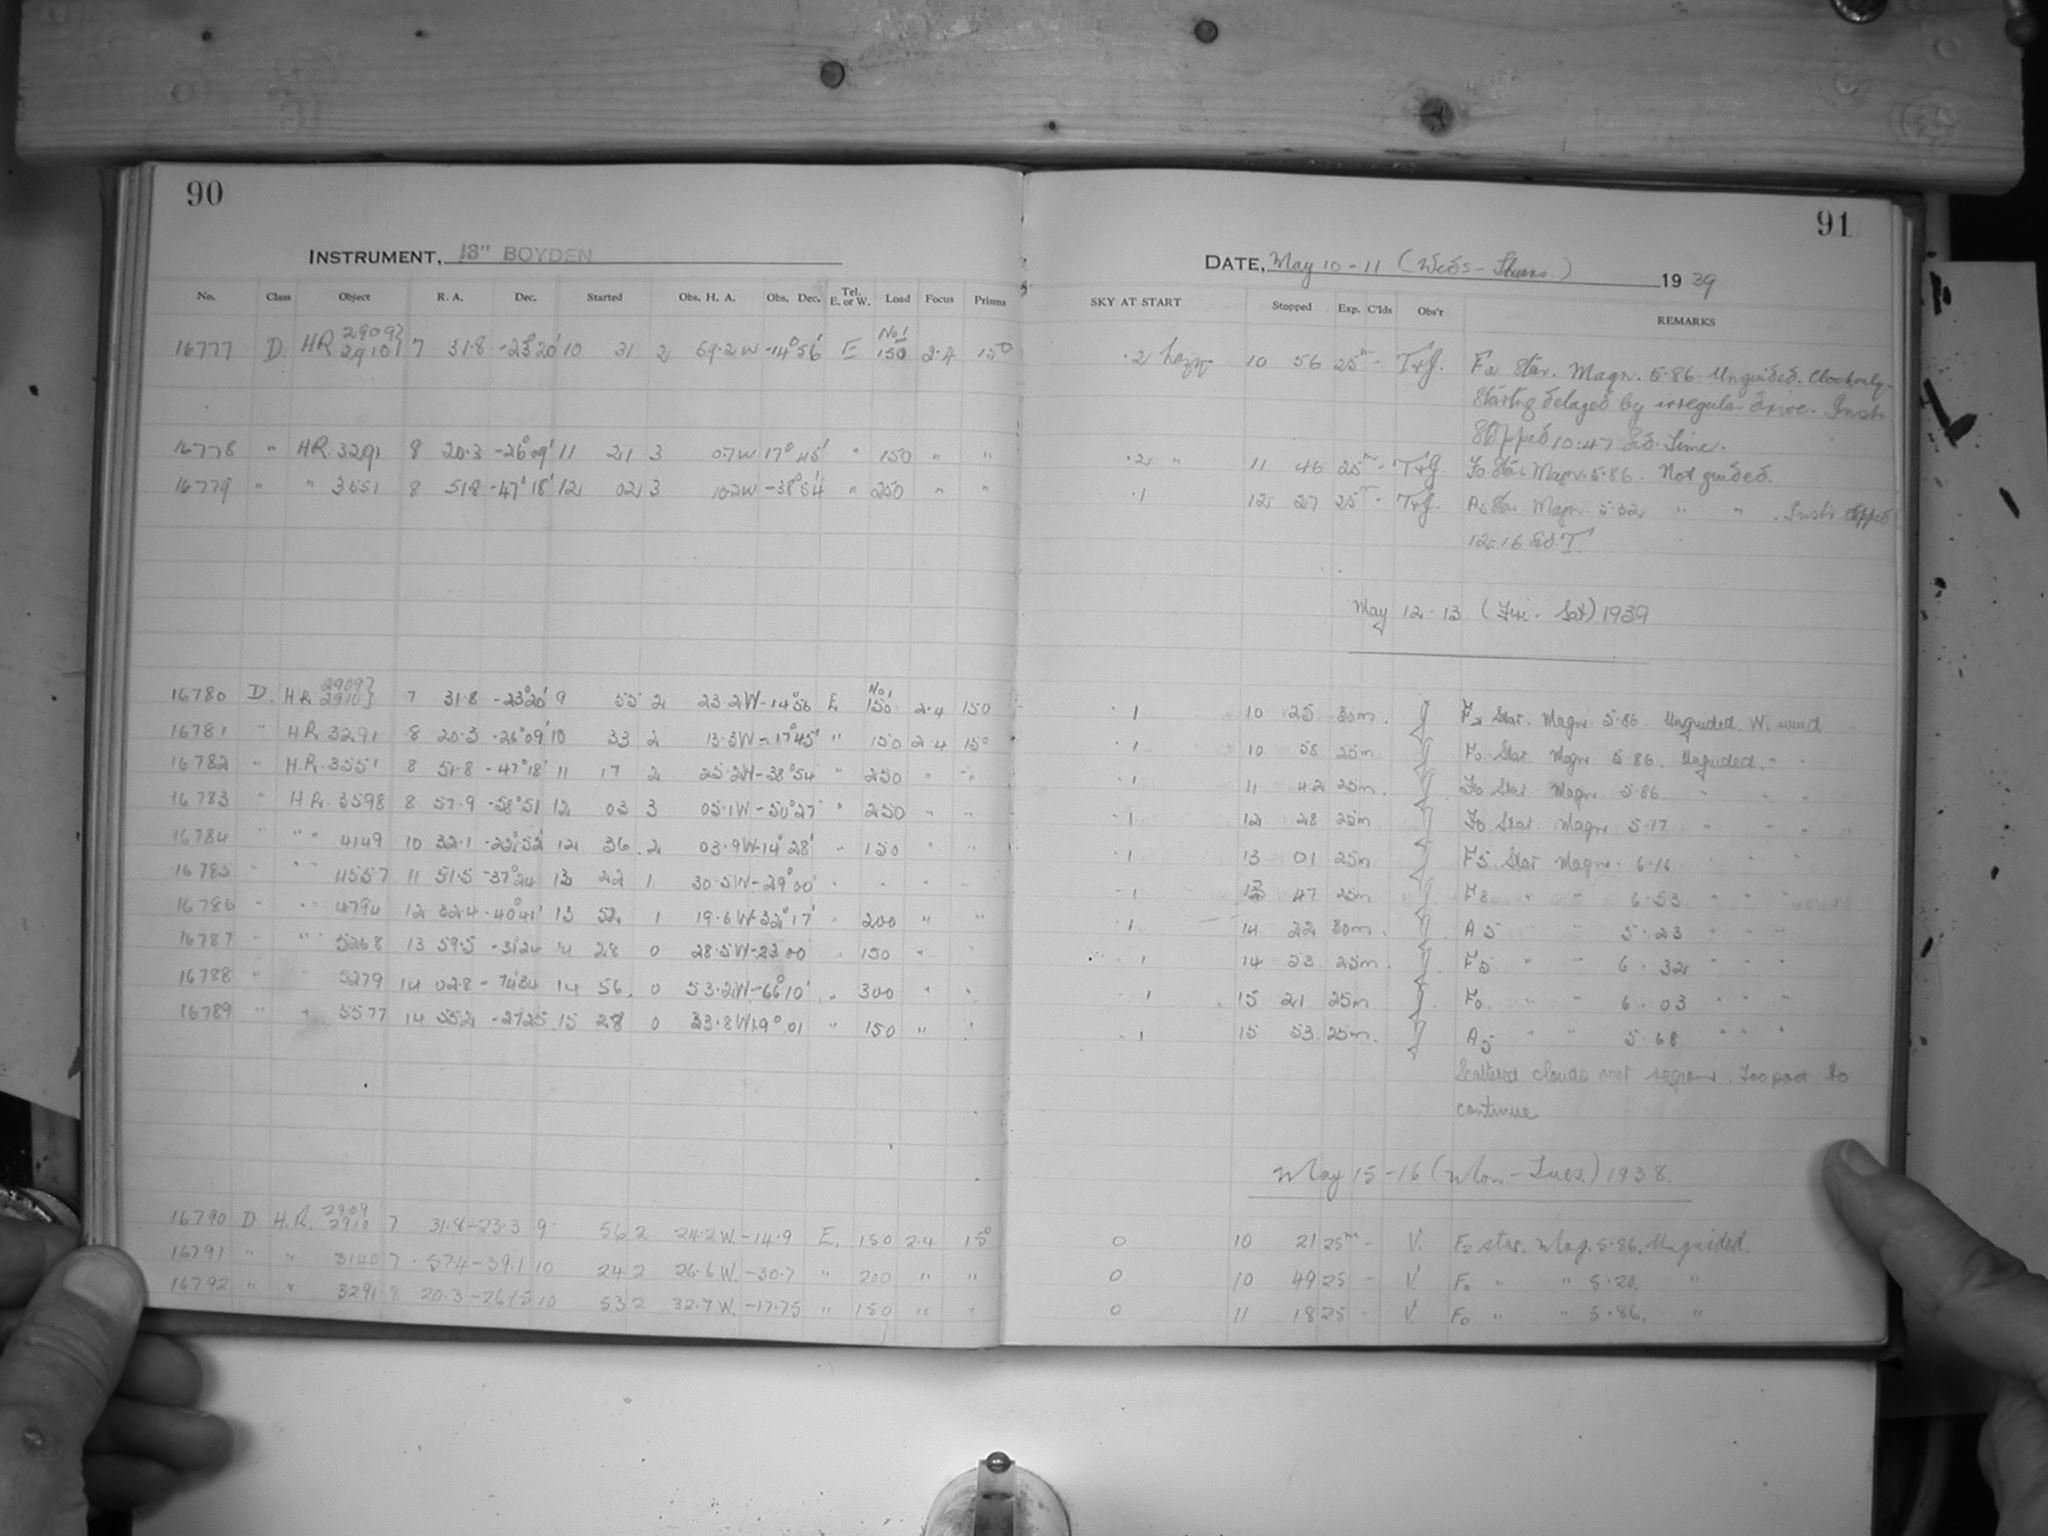 90
91
INSTRUMENT, 13" BOYDEN
DATE, May 10-11 (Weds-Thurs.) 1939
No. Class Object R. A. Dec. Started Obs. H. A. Obs. Dec. Tel. E. or W. Load Focus Prisms
SKY AT START Stopped Exp. C'lds Obs'r REMARKS
16777 D. HR 2909} 2910} 7 31.8 -23°20' 10 31 2 59.2W -14°56' E No.1 150 2.4 15°
.2 hazy 10 56 25m - T+J. F2 Star. Magn. 5.86 Unguided. Clock only.
Starting delayed by irregular drive. Instr.
Stopped 10:47 Sid. Time.
16778 " HR. 3291 8 20.3 -26°09' 11 21 3 0.7W 17°45' " 150 " "
.2 " 11 46 25m - T+J. F0 Star Magn. 5.86. Not guided.
16779 " " 3551 8 51.8 -47°18' 12 02 3 10.2W -38°54' " 250 " "
.1 12 27 25m - T+J. A5 Star. Magn. 5.32 " " . Instr. stopped
12:16 Sid. T.
May 12-13 (Fri. Sat) 1939
16780 D. HR 2909} 2910} 7 31.8 -23°20' 9 55 2 23.2W -14°56 E No.1 150 2.4 150
.1 10 25 30m. J F2 Star. Magn. 5.86 Unguided. W. wind
16781 " HR 3291 8 20.3 -26°09' 10 33 2 13.3W -17°45' " 150 2.4 15°
.1 10 58 25m. J F0 Star Magn. 5.86. Unguided. " "
16782 " H.R. 3551 8 51.8 -47°18' 11 17 2 25.2W -38°54 " 250 " "
.1 11 42 25m. J F0 Star Magn. 5.86 " " "
16783 " HR. 3598 8 57.9 -58°51 12 03 3 05.1W -50°27' " 250 " "
.1 12 28 25m J F0 Star. Magn 5.17 " " "
16784 " " " 4149 10 32.1 12 36 2 03.9W 14°28' " 150 " "
.1 13 01 25m J F5 Star Magn. 6.16 " " "
16785 " " 4557 11 51.5 -37°24 13 22 1 30.5W -29°00' " " " "
.1 13 47 25m J F8 " " 6.53 " "
16786 " " 4794 12 32.4 -40°41' 13 52 1 19.6W -32°17' " 200 " "
.1 14 22 30m. J A5 " " 5.23 " " "
16787 " " 5268 13 59.5 -31 24 14 28 0 28.5W -23 00 " 150 " "
.1 14 53 25m. J F5 " " 6.32 " " "
16788 " " 5279 14 02.8 14 56 0 53.2W -66°10' " 300 " "
.1 15 21 25m J F0. " " 6.03 " " "
16789 " " 5577 14 55.2 -27 25 15 28 0 33.8W 19°01 " 150 " "
.1 15 53 25m. J A5 " " 5.68 " " "
Scattered clouds Too poor to
continue
May 15-16 (Mon.-Tues.) 1938.
16790 D H.R. 2909 2910 7 31.8 -23.3 9 56 2 24.2W. -14.9 E. 150 2.4 15°
0 10 21 25m - V. F2 star. Mag. 5.86, Unguided.
16791 " " 3140 7 57.4 -39.1 10 24 2 26.6W. -30.7 " 200 " "
0 10 49 25 - V. F0 " " 5.20. "
16792 " " 3291 8 20.3 -26.15 10 53 2 32.7W. -17.75 " 150 " "
0 11 18 25 - V. F0 " " 5.86. "